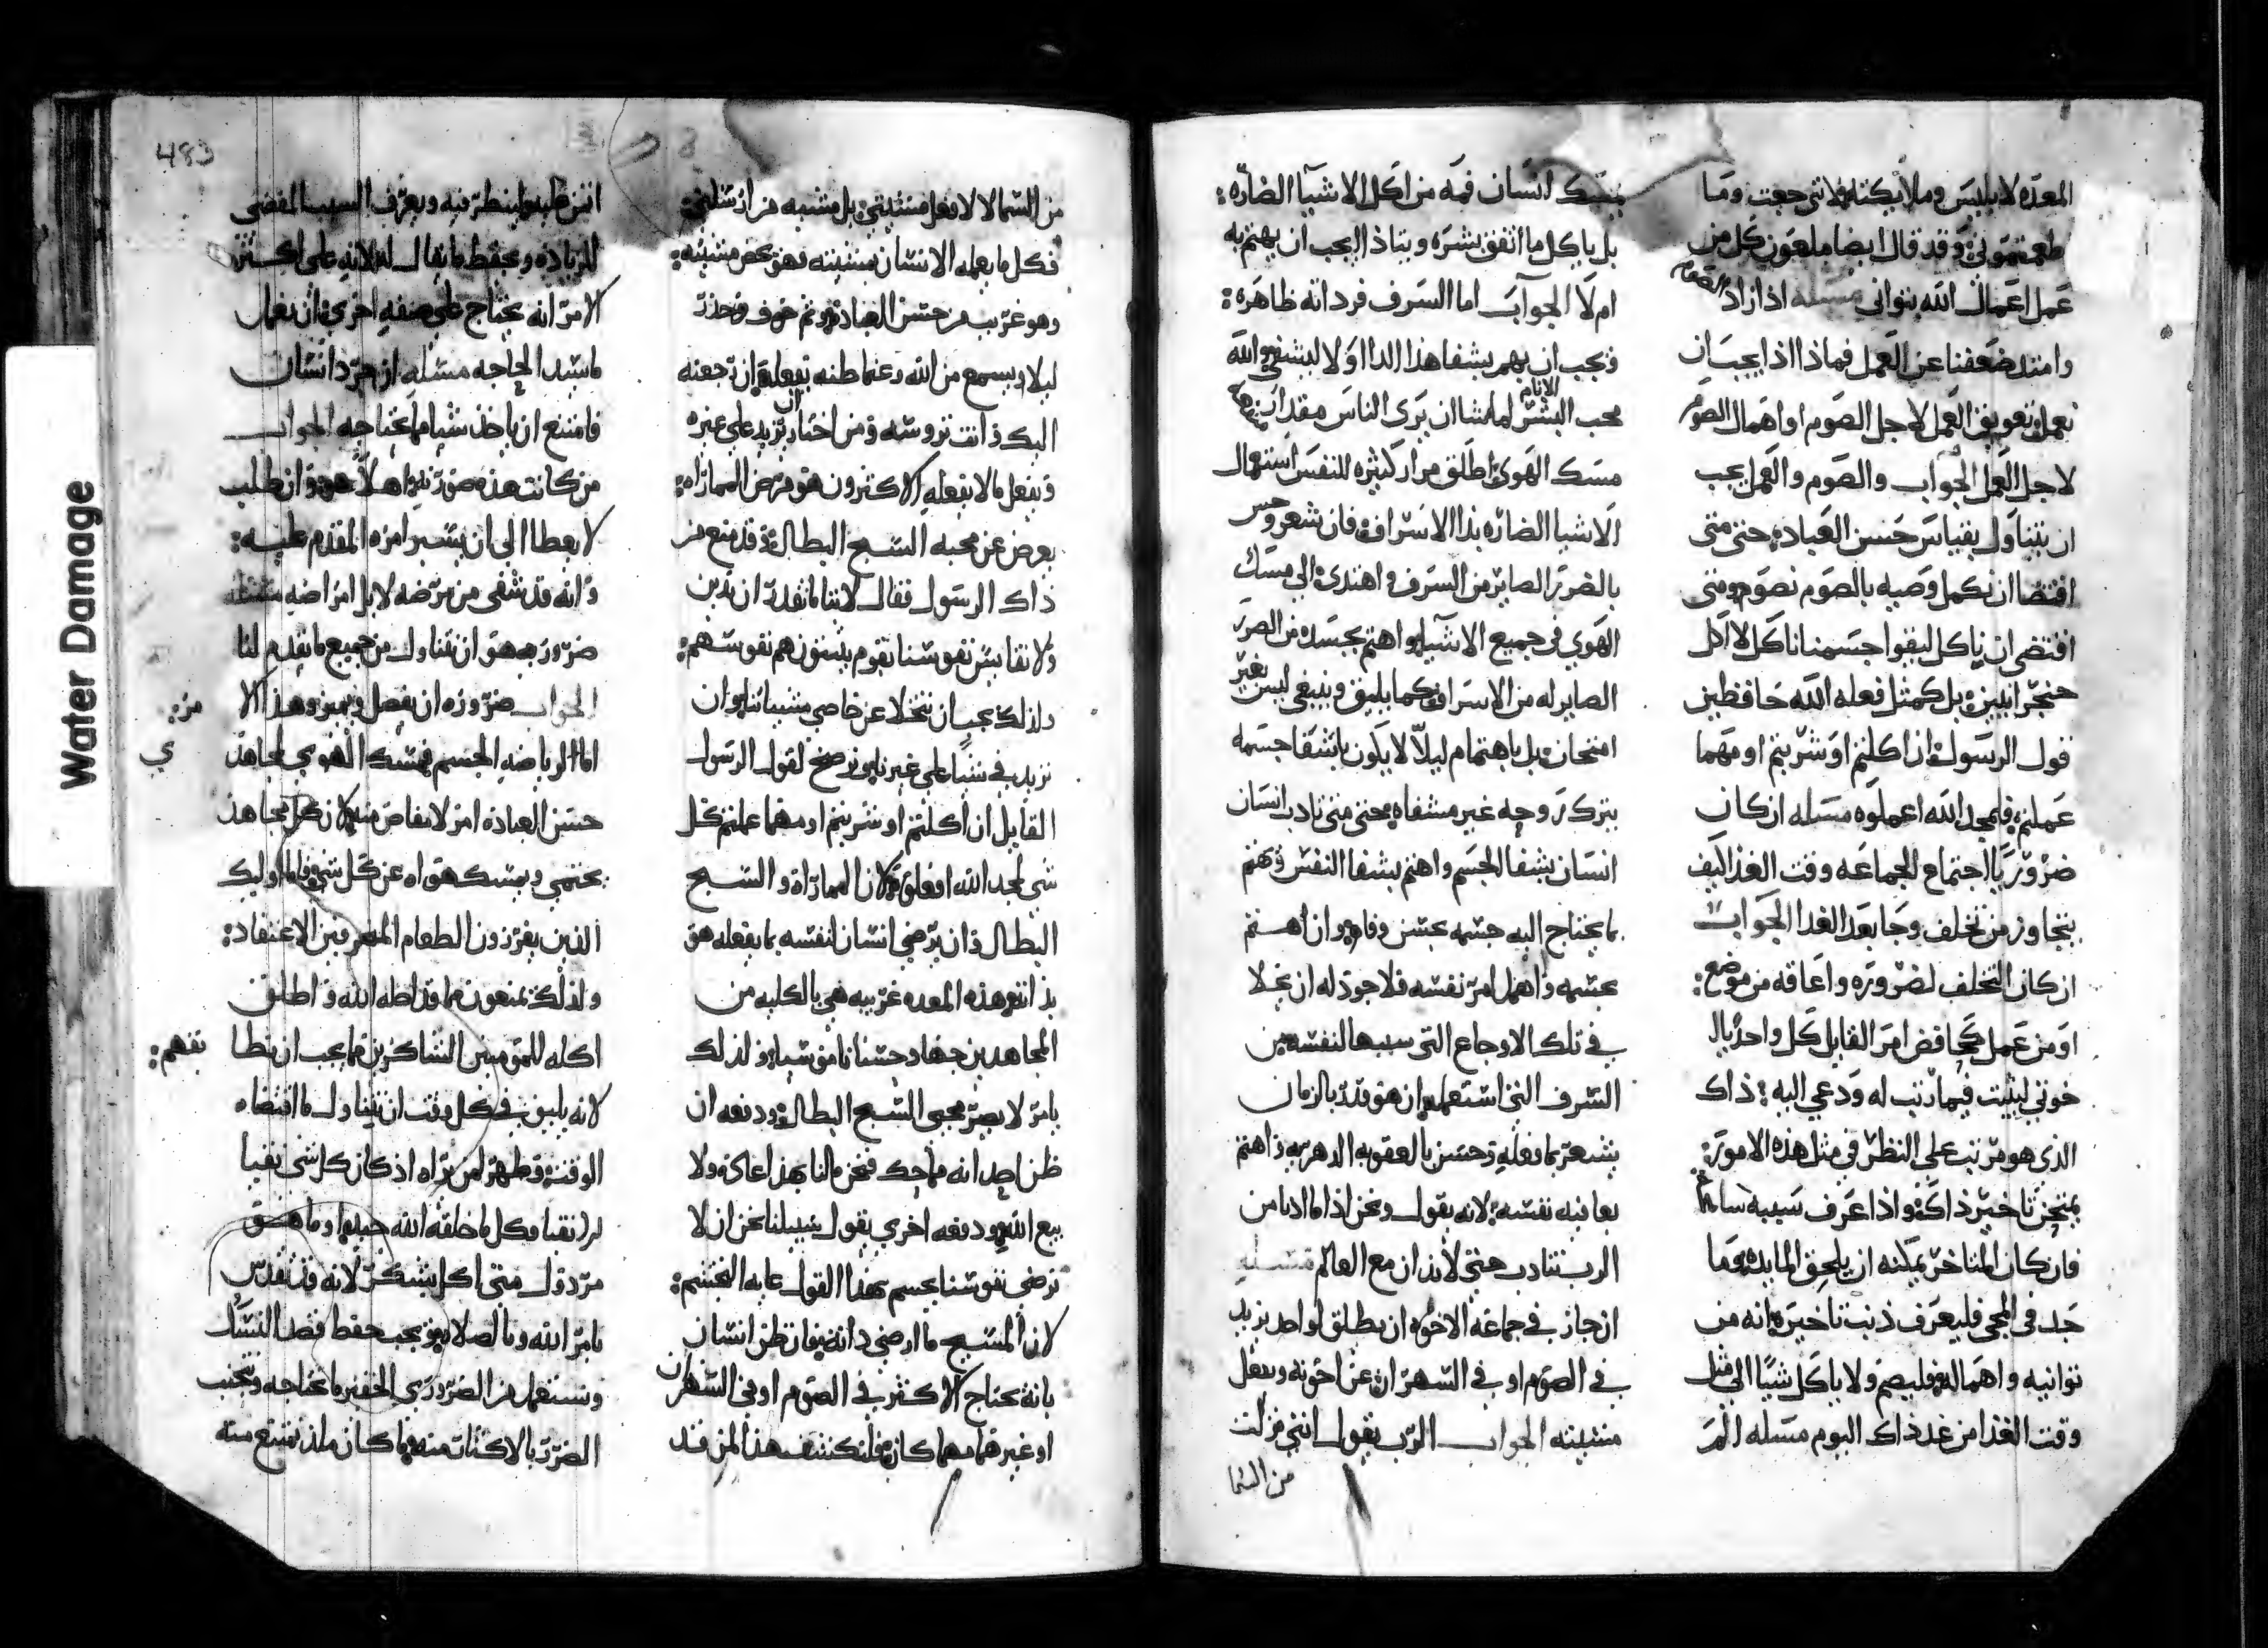 المعده لابليس وملايكته فلاني جعت وما
طعمتموني وقد قال ايضا ملعون كل من
عمل اعمال الله بتواني مسله اذ اراد الصوم
وامتد ضعفنا عن العمل فماذا اذا يجب ان
نعمل نعويق العمل لاجل الصوم او اهمال الصوم
لاجل العمل الجواب والصوم والعمل يجب
ان نتناول بقياس حسن العباده حتي متي
اقتضا ان نكمل وصيه بالصوم نصوم ومتي
اقتضي ان ناكل ليقوا جسمنا ناكل لا اكل
حنجرانيين بل كمثل فعله الله حافظين
قول الرسول ان اكلتم او شربتم او مهما
عملتم فلمجد الله اعملوه مسله ان كان
ضروريا اجتماع الجماعه وقت الغذا كيف
يتجاوز من تخلف وجا بعد الغدا الجواب
ان كان التخلف لضروره واعاقه من موضع:
او من عمل حافض امر القايل كل واحد يا
خوتي ليثبت فيما رتب له ودعي اليه: ذاك
الذي هو مرتب علي النظر في مثل هذه الامور:
يمتحن تاخير ذاك واذا عرف سببه سامح
فان كان المتاخر يمكنه ان يلحق المايده وما
جد في المجي فليعرف ذنب تاخيره انه من
توانيه واهماله فليصم ولا ياكل شيا الي مثل
وقت الغذا من غد ذاك اليوم مسله الم
يمسك انسان فمه من اكل الاشيا الضاره:
بل ياكل ما اتفق بشره ويتاذا ايجب ان يهتم به
ام لا الجواب اما السرف فردانه ظاهره:
فيجب ان يهم بشفا هذا الدا اولا ليشفي والله
محب البشر لما شا ان يري الناس مقدار
مسك الهوي اطلق مرار كثيره للنفس استعمال
الاشيا الضاره بذا الاسراف فان شعر وحس
بالضرر الصاير من السرف واهتدي الي مسك
الهوي في جميع الاشيا واهتم بجسده من الضرر
الصاير له من الاسراف كما يليق وينبغي ليس بغير
امتحان بل باهتمام ليلا لا يكون باشفا جسمه
يترك روحه غير مشفاه حتي متي تادب انسان
انسان بشفا الجسم واهتم بشفا النفس فيهتم
بما يحتاج اليه جسمه بحسن وفا وان اهتم
بجسمه واهمل امر نفسه فلا جود له ان يخلا
في تلك الاوجاع التي سببها لنفسه من
السرف الذي استعمله ان هو قدر بالزمان
يشعر بما فعله وحسن بالعقوبه الدهريه واهتم
بعافيه نفسه لانه يقول ونحن اذا ما ادبنا من
الرب نتادب حتي لا ندان مع العالم مسله
ان جاز في جماعه الاخوه ان يطلق لواحد يزيد
في الصوم او في السهر اكثر عن اخوته ويفعل
مشيته الجواب الرب يقول انني نزلت
من السما
من السما لا لافعل مشيتي بل مشيه من ارسلني:
فكل ما يعمله الانسان بمشيته فهو بحض مشيته:
وهو غريب من حسن العباده وثم خوف وحذر
ليلا يسمع من الله عنما ظنه يفعله ان رجعته
اليك وانت تروسه ومن اختار ان يزيد علي غيره
ويفعل ما لا يفعله الاكثرون هو مرض المماراه:
يعرض عن محبه السبح البطال وقد منع من
ذاك الرسول فقال لاننا ما نقدر ان ندين
ولا نقايس نفوسنا بقوم يثبتون هم نفوسهم:
ولذلك يجب ان نتخلا عن خاصي مشيياتنا وان
نزيد في شيا علي غيرنا ونرضخ لقول الرسول
القايل ان اكلتم او شربتم او مهما عملتم كل
شي لمجد الله افعلوه لان المماراه والسبح
البطال وان يرضي انسان لنفسه بما يفعله هو
بذاته هذه المعده غريبه هي بالكليه من
المجاهدين جهاد حسنا ناموسيا ولذلك
يامر لا نصير محبي السبح البطال ودفعه ان
ظن احد انه ماحك فنحن مالنا بهذا عاده ولا
بيع الله ودفعه اخري يقول سبيلنا نحن ان لا
نرضي نفوسنا بجسم بهذا القول غايه التجشم:
لان المسيح ما ارضي ذاته فان ظن انسان
بانه يحتاج الاكثر في الصوم او في السهر ان
او غيرهما مهما كان فليكشف هذا لمن قد
انتمن عليه لينظر فيه ويعرف السبب المفضي
للزياده ويحفظ ما يقال له لانه علي اكثر
الامر انه يحتاج علي صفه اخري ان نعمل
ما تسد الحاجه مسله ان حرد انسان
فامتنع ان ياخذ شيا مما يحتاجه الجواب
من كانت هذه صورته اهلا هو وان طلب
لا يعطا الي ان يسير امره المقدم عليه:
وانه قد شفي من مرضه لا بل امراضه مسله
ضروره هو ان نتناول من جميع ما يقدم لنا
الجواب ضروره ان نفصل ونميز وهذا الا
اما الرياضه الجسم فمسك الهوي لمجاهد
حسن العباده امر لا مفاص منه لان كل مجاهد
يحتمي ويمسك هواه عن كل شي واما اوليك
الذين يفرزون الطعام المنحرفين الاعتقاد:
ولذلك يمنعون مما قد احله الله واطلق
اكله للمومنين الشاكرين فما يجب ان يتطا
لانه يليق في كل وقت ان نتناول ما اقتضاه
الوقت ونظهر لمن يراه اذ كان كل شي نقيا
لدا نقيا وكل ما خلقه الله جيد وما هو
مردول متي اكل بشكر لانه قد تقدس
بامر الله وبالصلا ويجب حفظ قصد النسك
ونستعمل من الضروري الحقير ما نحتاجه ونجتنب
الضرر بالاكتار منه وما كان ملذ نمتنع منه
تفهم:
483
Water Damage